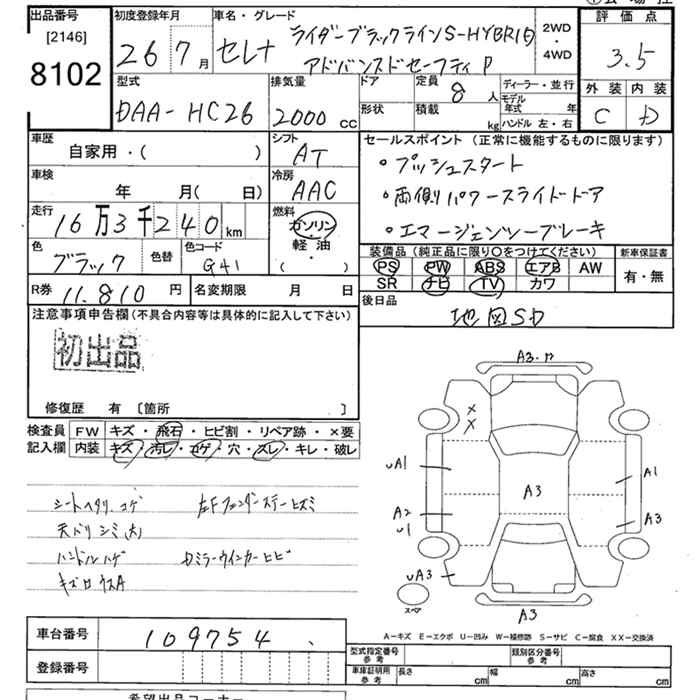 出品番号
[2146]
8102
初度登録年月
26年7月
車名・グレード
セレナ
ライダーブラックラインS-HYBRID
アドバンスドセーフティP
2WD
・
4WD
評価点
3.5
外装 内装
C D
型式
DAA-HC26
排気量
2000 cc
ドア
形状
定員
8人
積載
kg
ディーラー・並行
モデル年式 年
ハンドル 左・右
車歴
自家用・( )
シフト
AT
セールスポイント (正常に機能するものに限ります)
・プッシュスタート
・両側パワースライドドア
・エマージェンシーブレーキ
車検
年 月( 日)
冷房
AAC
走行
16万3千240km
燃料
ガソリン
軽油
( ・ )
色
ブラック
色替
色コード
G41
装備品(純正品に限り〇をつけてください)
PS PW ABS エアB AW
SR ナビ TV カワ
新車保証書
有・無
R券 11.810円
名変期限 月 日
後日品
地図SD
注意事項申告欄(不具合内容等は具体的に記入して下さい)
初出品
修復歴 有 〔箇所 〕
検査員
記入欄
FW キズ・飛石・ヒビ割・リペア跡・×要
内装 キズ・汚レ・コゲ・穴・スレ・キレ・破レ
シートヘタリ、コゲ
天バリシミ(大)
ハンドルハゲ
左Fフェンダーステーヒズミ
A3
××
UA1
A2
U1
UA3
A3
A1
A3
A3
スペア
A-キズ E-エクボ U-凹み W-補修跡 S-サビ C-腐食 XX-交換済
車台番号
109754
登録番号
型式指定番号
参考
類別区分番号
参考
車庫証明用
参考
長さ cm
幅 cm
高さ cm
希望出品コーナー